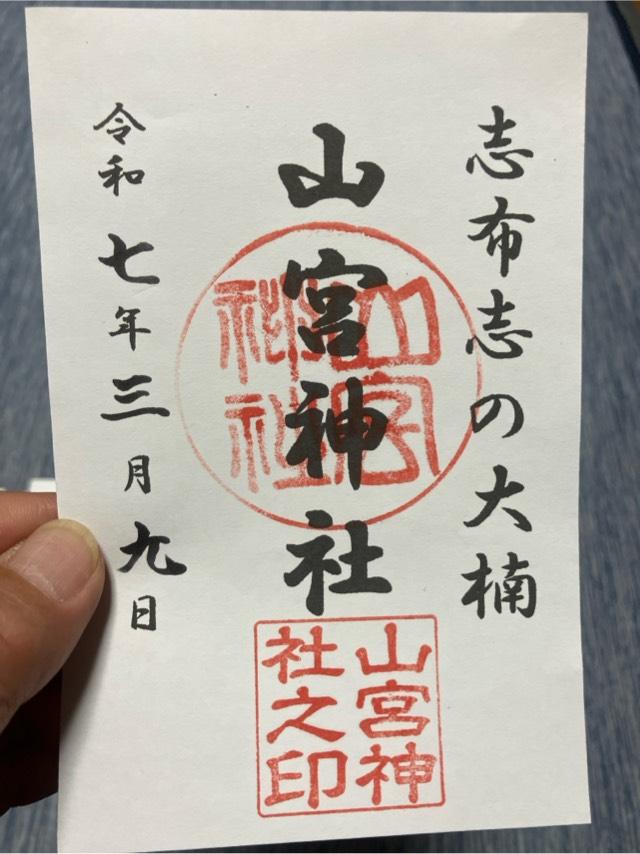 志布志の大楠
山宮神社
令和七年三月九日
山宮神社
山宮神
社之印